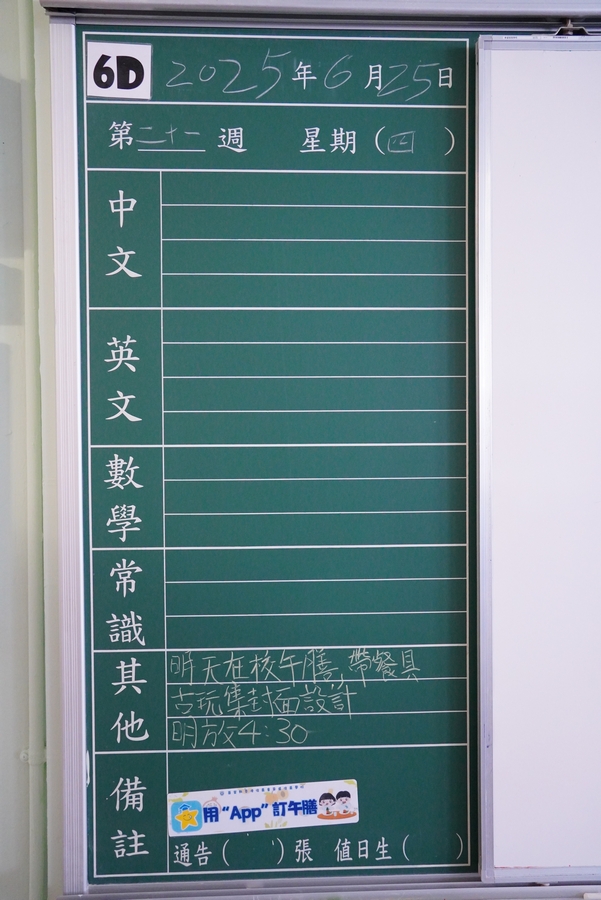 6D 2025年6月25日
第二十一週 星期（四）
中文
英文
數學
常識
其他
明天在校午膳,帶餐具
古玩集封面設計
明放4:30
備註
用“App”訂午膳
通告（ ）張 值日生（ ）